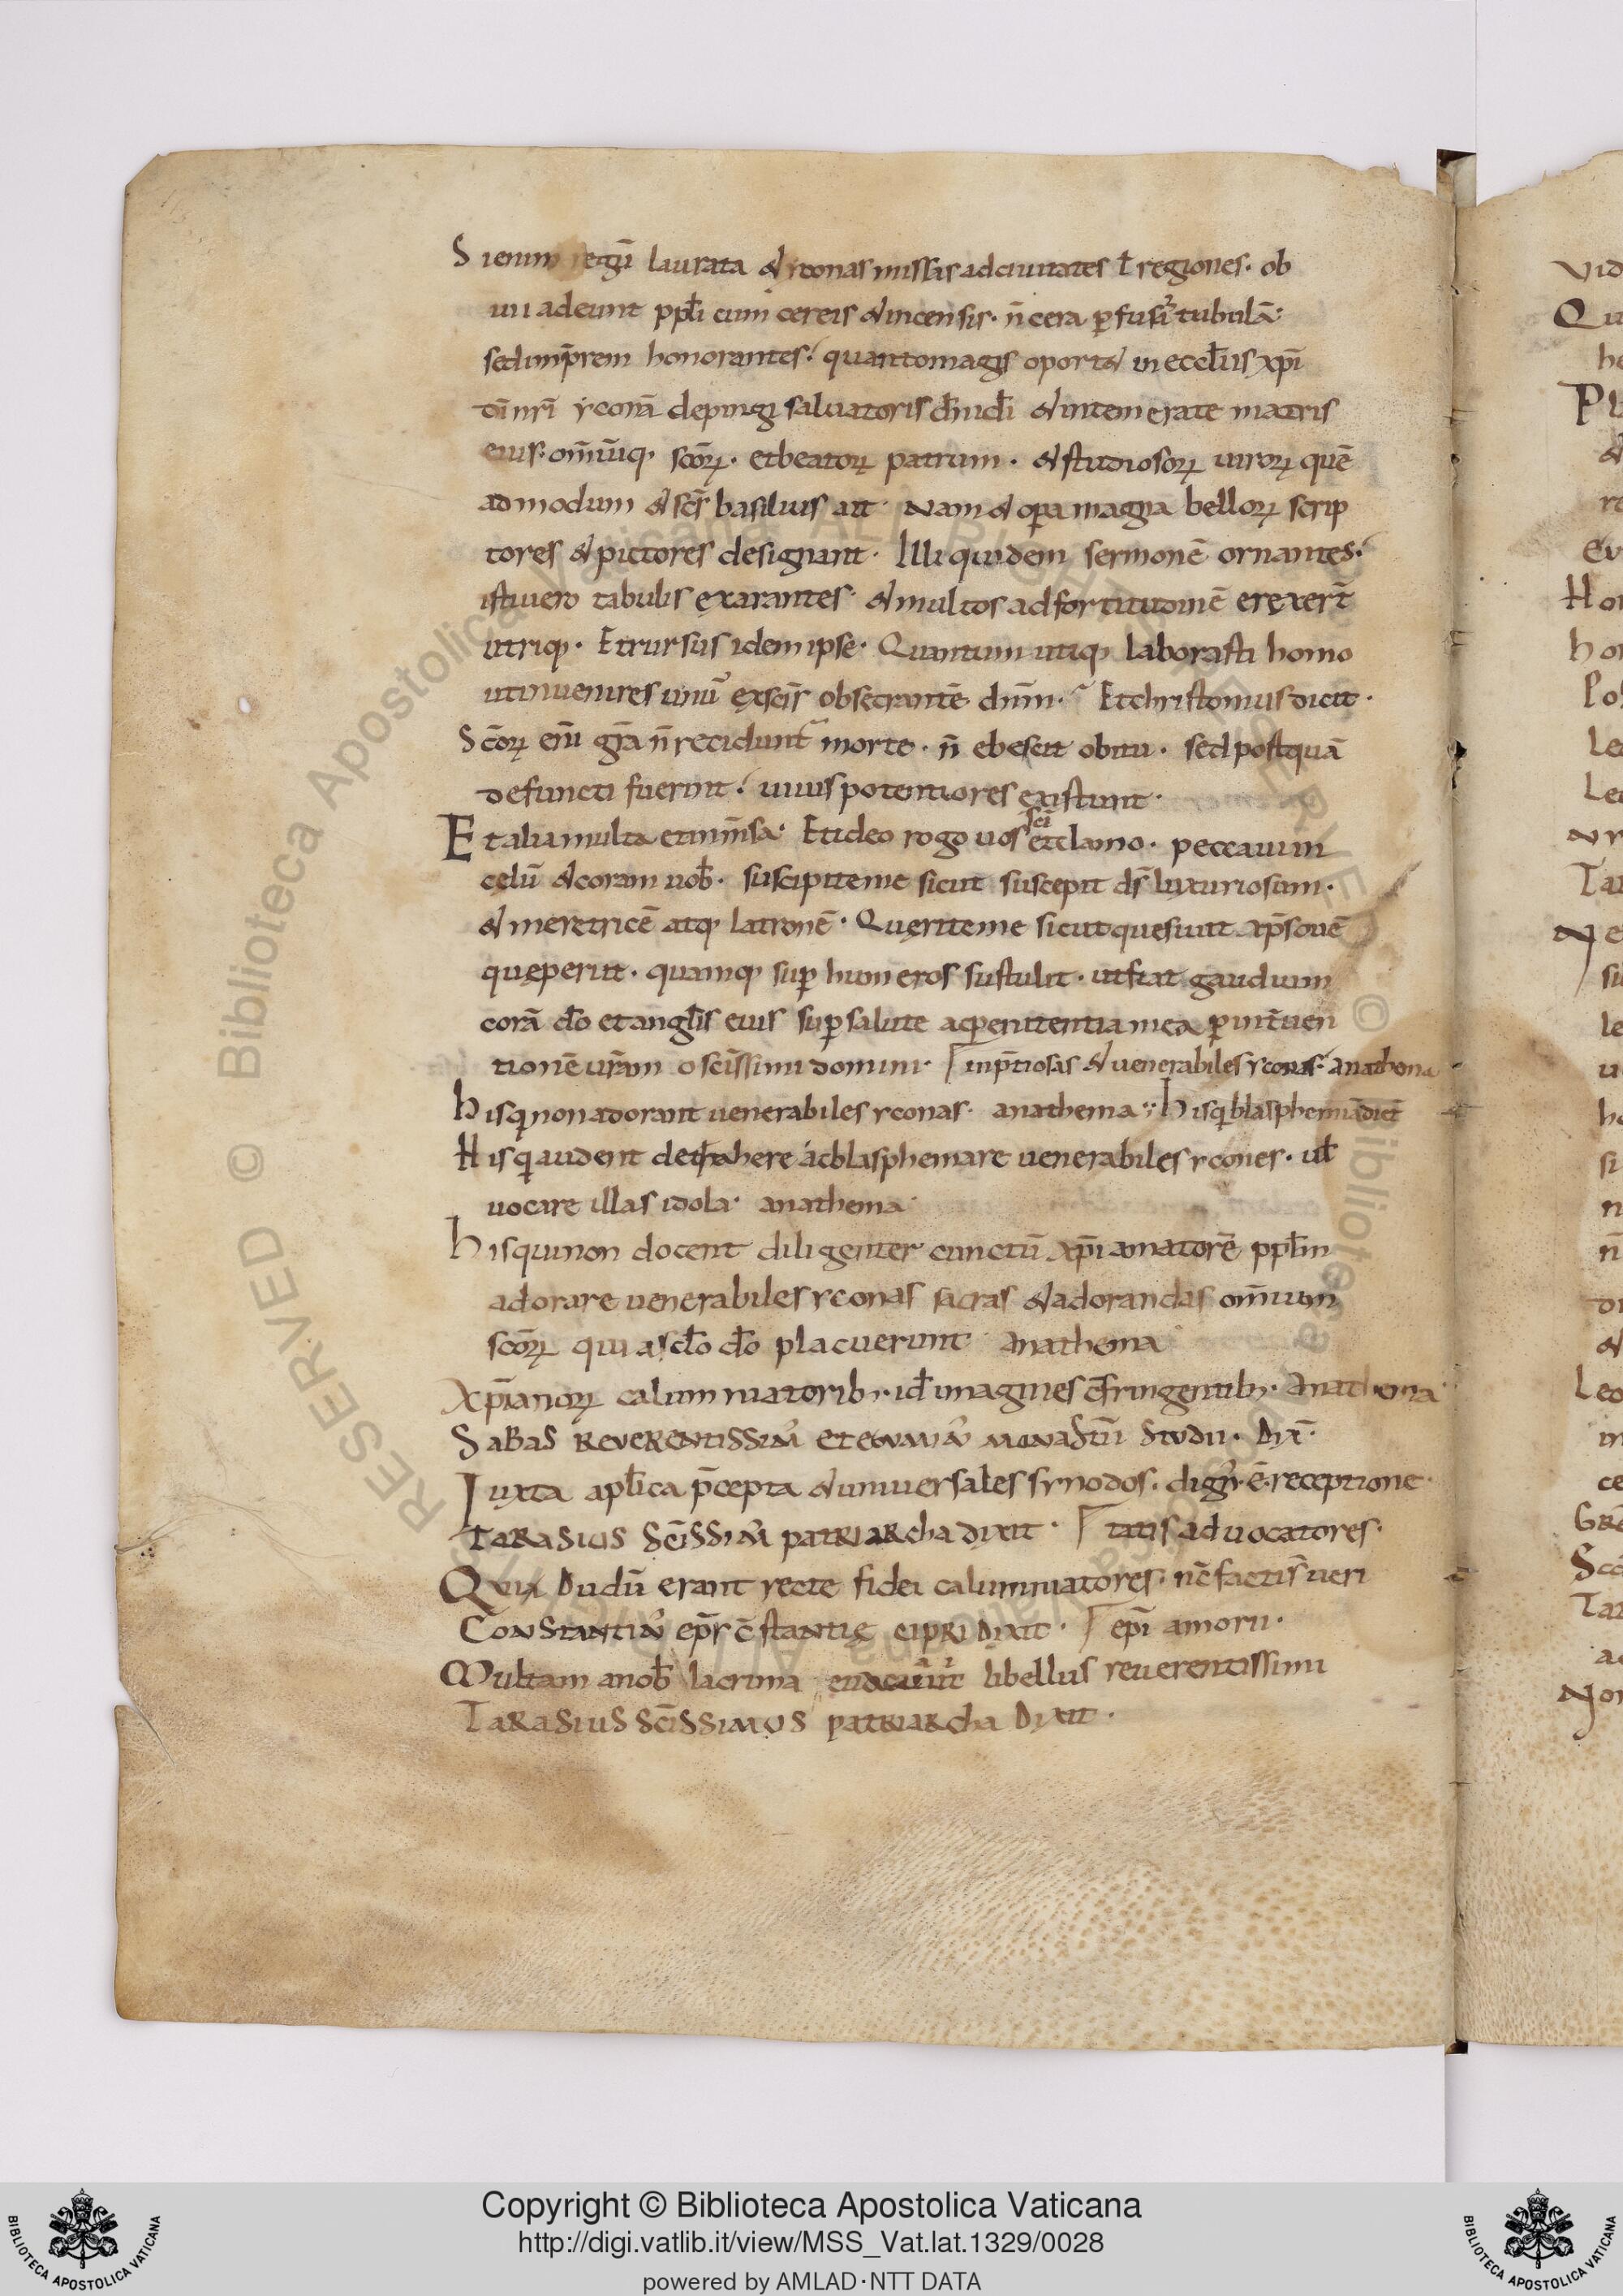 Si enim regū laurata & yconas missas ad ciuitates ł regiones· ob
uii adeunt ppłi cum cereis & incensis· ñ cera ꝑfusā tabulā·
sed imp̄rem honorantes· quanto magis oport& in eccłiis xp̄i
dī nr̄i yconā depingi saluatoris dn̄i dī & intemerate matris
eius· om̄iūq· sc̄oꝝ· et beatoꝝ patrum· & studiosoꝝ uiroꝝ quē
admodum & sc̄s basilius ait· Nam & opa magna belloꝝ scrip
tores & pictores designant· Illi quidem sermonē ornantes·
isti uero tabulis exarantes· & multos ad fortitudinē erexerт̄
utriq· Et rursus idem ipse· Quantum utiq laborasti homo
ut inuenires unū ex sc̄is obsecrantē dn̄m· Et chrisostomus dicit·
Sc̄oꝝ eni gr̄a ñ reciduntˀ morte· ñ ebescit obitu· sed postquā
defuncti fuerint· uiuis potentiores existunt·
Et alia multa et inm̄sa· Et ideo rogo uos sc̄i et clamo· peccaui in
celū & coram uob· suscipite me sicut suscepit ds̄ luxuriosum·
& meretricē atq latronē· Querite me sicut quesiuit xp̄s ouē
quę periit· quamq sup humeros sustulit· ut fiat gaudium
corā dō et angłis eius sup salute ac penitentia mea ꝑ intuen
tionē ur̄am o sc̄issimi domini· in p̄tiosas & uenerabiles yconas· anathema
His q non adorant uenerabiles yconas· anathema· His q blasphemiā dict̄
His q audent detrahere ac blasphemare uenerabiles ycones· uł
uocare illas idola· anathema·
His qui non docent diligenter cunctū xp̄i amatorē ppłm
adorare uenerabiles yconas sacras & adorandas om̄ium
sc̄oꝝ qui a sc̄lo dō placuerunt anathema
Xp̄ianoꝝ calumniatorib;· id imagines c̄fringentib;· Anathema·
Sabas reverentissim᾿ monastīi studii· Dix̄·
Iuxta apłica p̄cepta & uniuersales synodos· dign᾿ ē receptione·
Tarasius sc̄issim᾿ patriarcha dixit· tatis aduocatores·
Qui dudū erant recte fidei calumniatores· nc̄ facti s̄ ueri
Constantin᾿ ep̄s c̄stantię cipri dixit· epī amorii·
Multam a nob lacrima libellus reuerentissimi
Tarasius sc̄issimus patriarcha Dixit·
Copyright © Biblioteca Apostolica Vaticana
http://digi.vatlib.it/view/MSS_Vat.lat.1329/0028
powered by AMLAD·NTT DATA